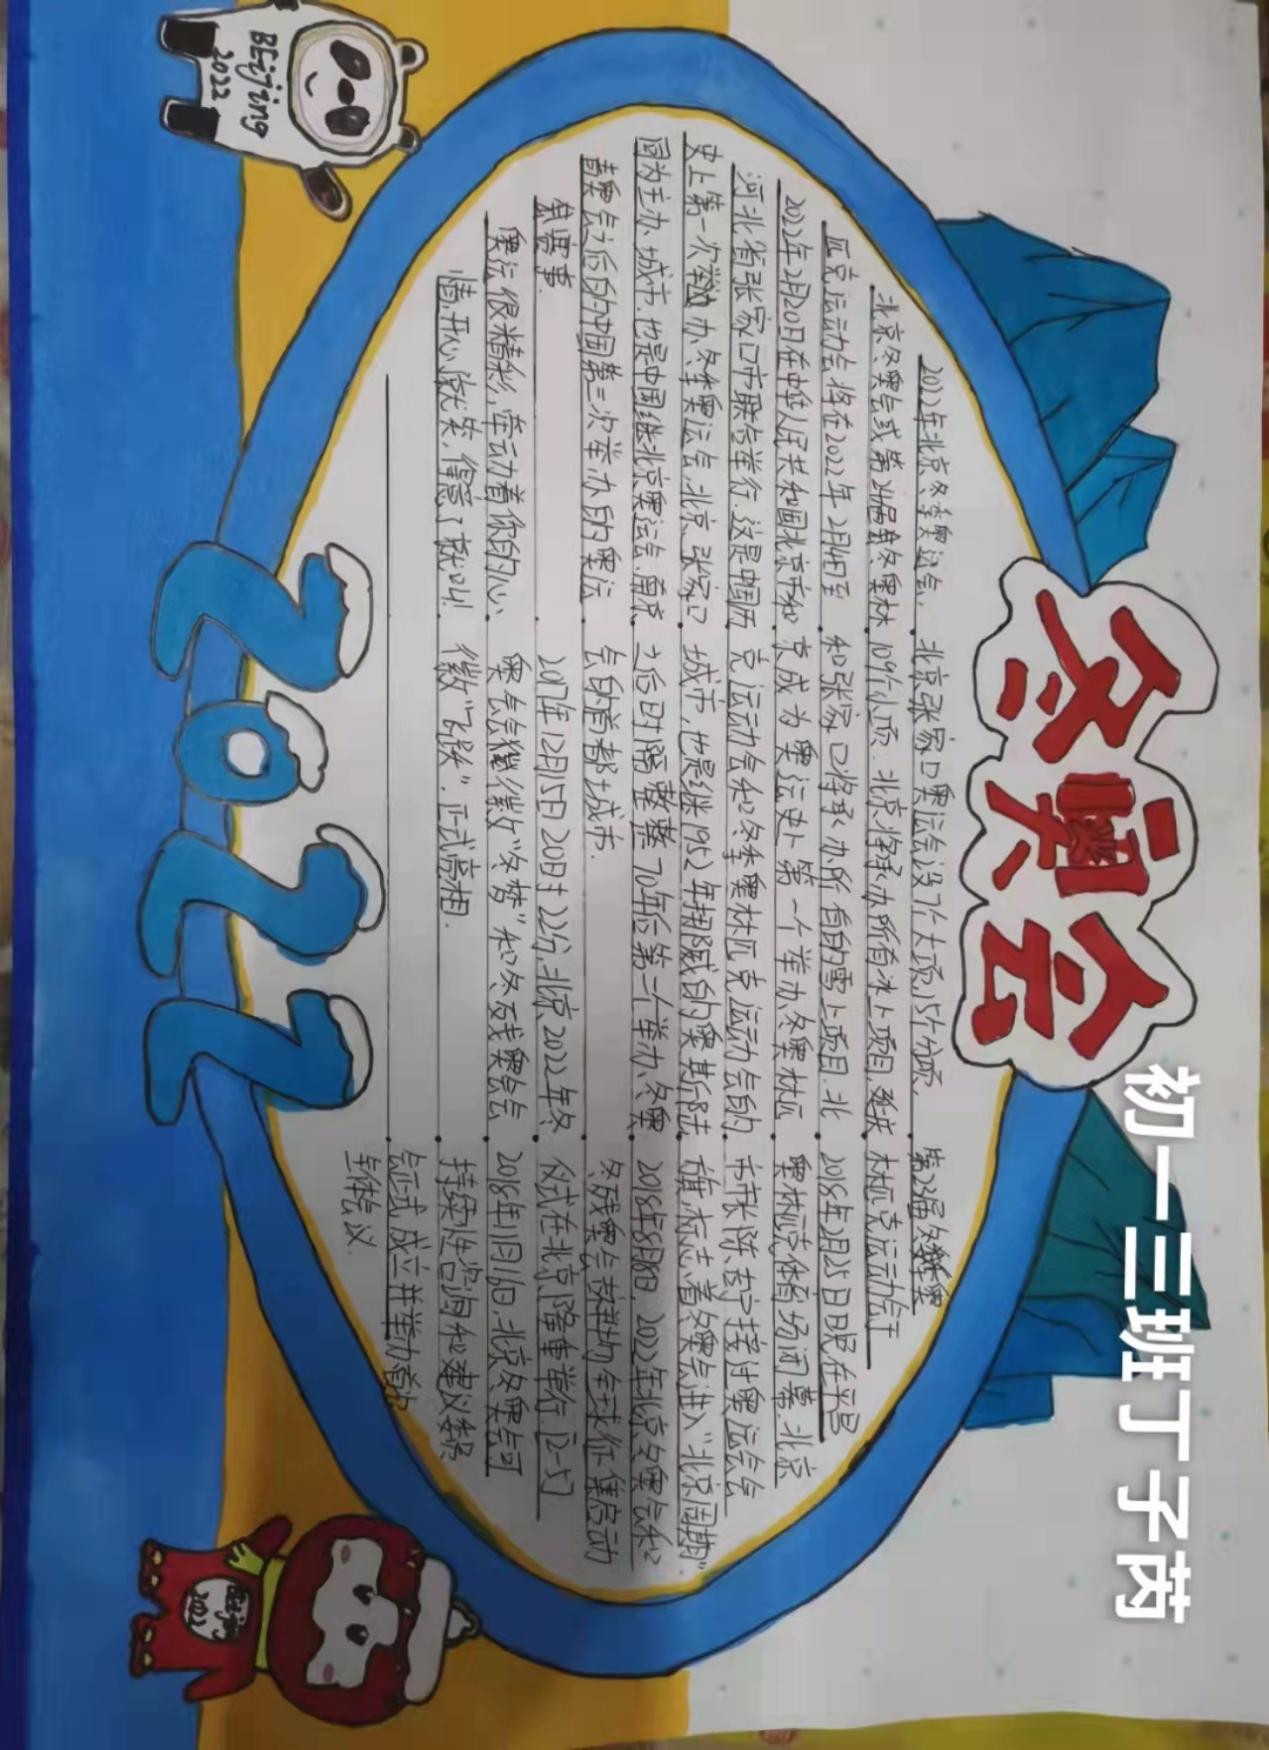 初一三班丁子芮
冬奥会
2022年北京冬季奥运会,
北京冬奥会或第24届冬奥林
匹克运动会将在2022年2月4日至
2022年2月20日在中华人民共和国北京市和
河北省张家口市联合举行.这是中国历
史上第一次举办冬季奥运会,北京.张家口
因为主办城市,也是中国继北京奥运会.南京
青奥会之后的中国第三次举办的奥运
赛事.
奥运很精彩,牵动着你的心,
情,开心就笑,得意了就叫!
北京张家口奥运会设7个大项,15个分项,
109个小项.北京将承办所有冰上项目,延庆
和张家口将承办所有的雪上项目.北
京成为奥运史上第一个举办冬奥林匹
克运动会和冬季奥林匹克运动会的
城市,也是继1952年挪威的奥斯陆
之后时隔整整70年后第二个举办冬奥
会的首都城市.
2017年12月15日20时22分,北京2022年冬
奥会会徽"冬梦"和冬残奥会会
徽"飞跃".正式亮相.
第23届冬季奥
林匹克运动会于
2018年2月25日晚在平昌
奥林匹克体育场闭幕.北京
市市长陈吉宁接付奥运会会
旗,标志着冬奥会进入"北京周期".
2018年8月8日,2022年北京冬奥会和
冬残奥会吉祥物全球征集启动
仪式在北京隆重举行.[2-5]
2018年11月16日,北京冬奥会可
持续性咨询和建议委员
会正式成立并举办首次
全体会议.
BEijing
2022
2022
2022